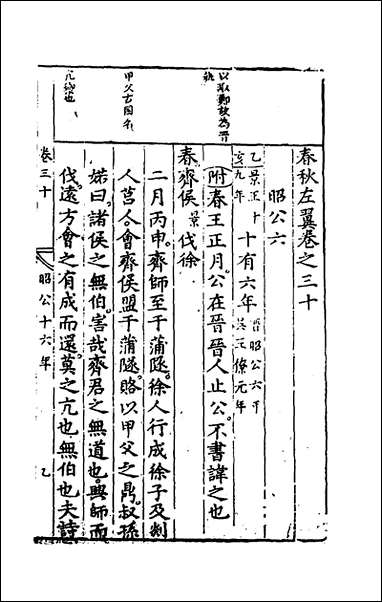 春秋左翼卷之三十
昭公六
乙亥 景王十九年 十有六年 晉昭公六年 吳王僚元年
附春王正月公在晉晉人止公不書諱之也
春齊侯景伐徐
二月丙申齊師至于蒲隧徐人行成徐子及剡
人莒人會齊侯盟于蒲隧賂以甲父之鼎叔孫
婼曰諸侯之無伯害哉齊君之無道也興師而
伐遠方會之有成而還莫之亢也無伯也夫詩
以取鄆故為晉執
甲父古國名
亢禦也
卷三十
昭公十六年
乙